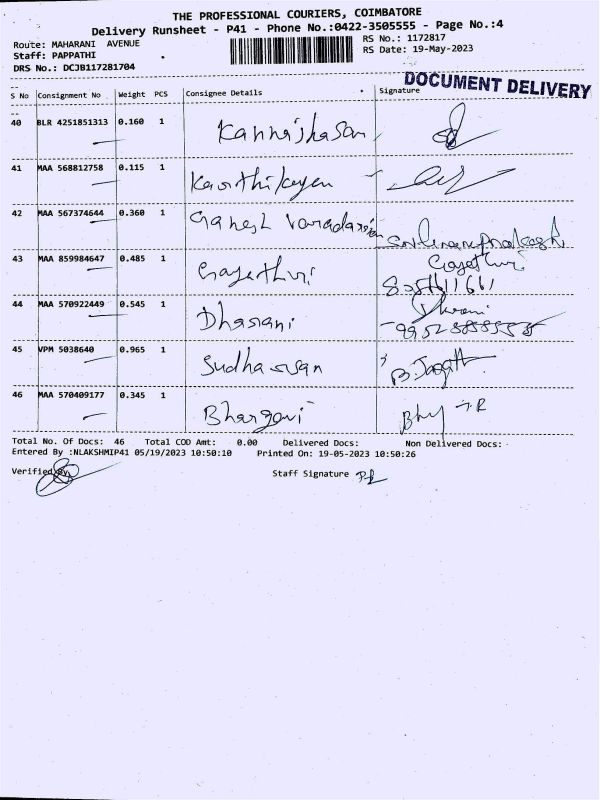 THE PROFESSIONAL COURIERS, COIMBATORE
Delivery Runsheet - P41 - Phone No.:0422-3505555 - Page No.:4
Route: MAHARANI AVENUE
RS No.: 1172817
Staff: PAPPATHI
RS Date: 19-May-2023
DRS No.: DCJB117281704
DOCUMENT DELIVERY
S No Consignment No Weight PCS Consignee Details Signature
40 BLR 4251851313 0.160 1 Kannadhasan
41 MAA 568812758 0.115 1 Karthikeyan
42 MAA 567374644 0.360 1 Ganesh Varadarajan
43 MAA 859984647 0.485 1 Gayathri Gayathri
44 MAA 570922449 0.545 1 Dharani Dharani
45 VPM 5038640 0.965 1 Sudharsan
46 MAA 570409177 0.345 1 Bhargavi
Total No. Of Docs: 46 Total COD Amt: 0.00 Delivered Docs: Non Delivered Docs:
Entered By :NLAKSHMIP41 05/19/2023 10:50:10 Printed On: 19-05-2023 10:50:26
Verified By
Staff Signature